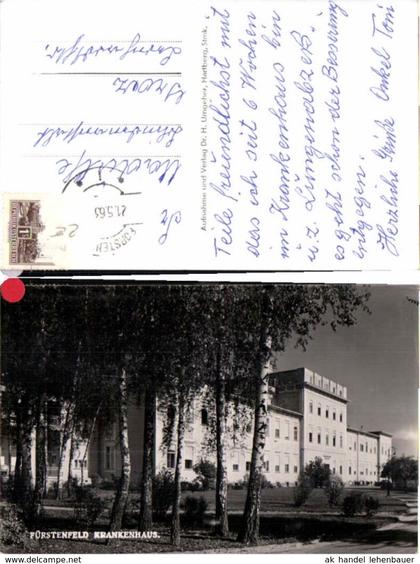 Teile freundlichst mit
dass ich seit 6 Wochen
im Krankenhaus bin
u.z. "Lungenabzeß"
es geht schon der Besserung
entgegen.
Herzliche Grüße Onkel Toni
Aufnahme und Verlag Dr. H. Umgeher, Hartberg, Stmk.
Graz
FÜRSTENF
21.5.63
FÜRSTENFELD KRANKENHAUS.
© ak handel lehenbauer